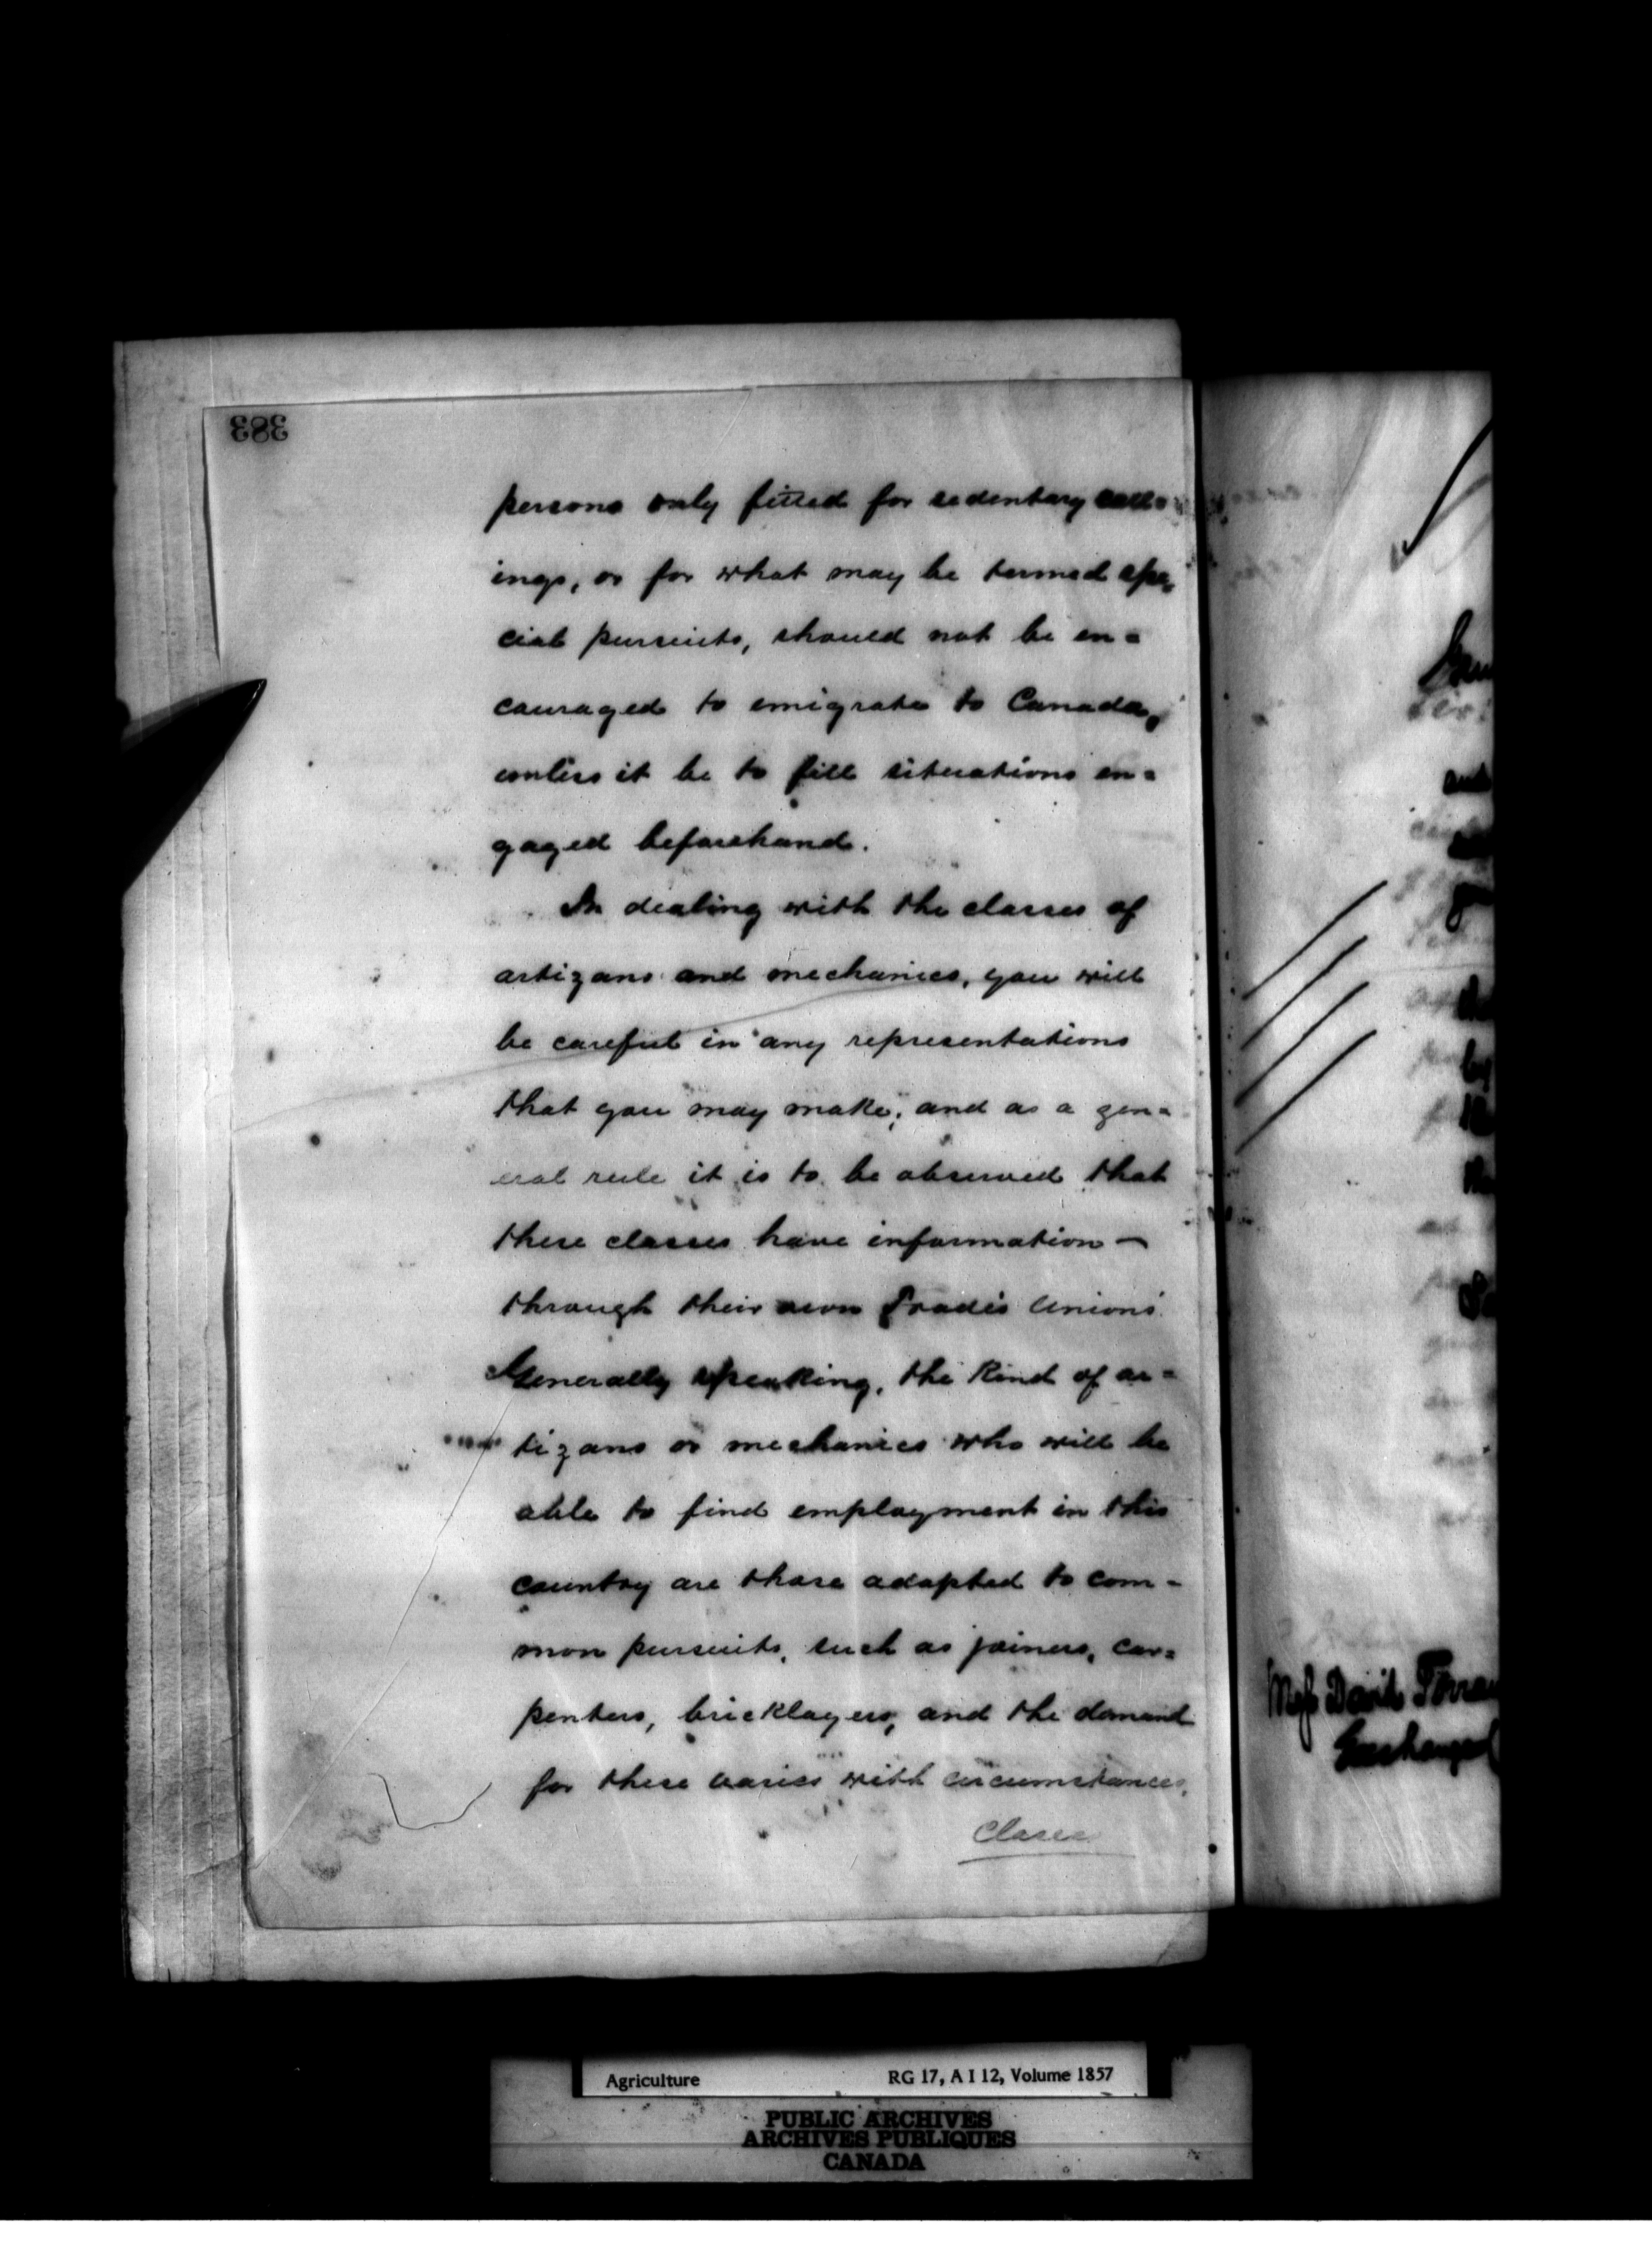 383
persons only fitted for sedentary call=
ings, or for what may be termed spe=
cial pursuits, should not be en=
couraged to emigrate to Canada,
unless it be to fill situations en=
gaged beforehand.
In dealing with the classes of
artizans and mechanics, you will
be careful in any representations
that you may make; and as a gen=
eral rule it is to be observed that
these classes have information —
through their own Trades Unions.
Generally speaking, the kind of ar=
tizans or mechanics who will be
able to find employment in this
country are those adapted to com=
mon pursuits, such as joiners, car=
penters, bricklayers, and the demand
for these varies with circumstances.
David
Agriculture RG 17, A I 12, Volume 1857
PUBLIC ARCHIVES
ARCHIVES PUBLIQUES
CANADA